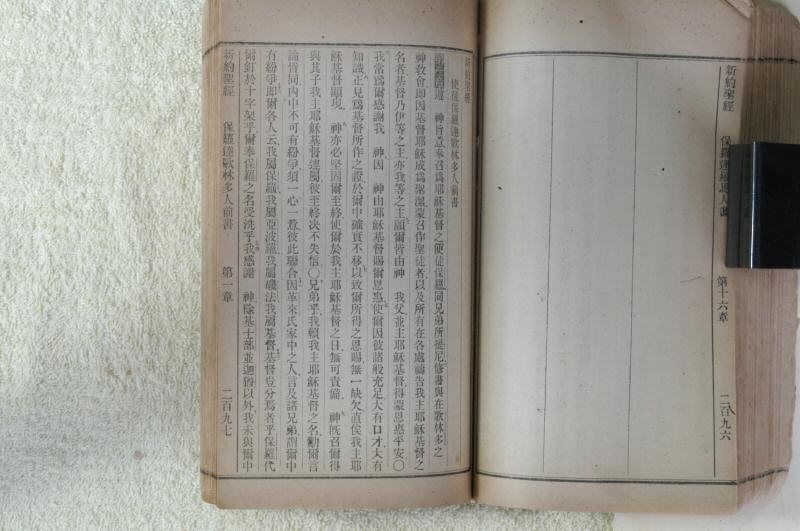 新約聖經 保羅達羅馬人書 第十六章 二百九六
新約聖經
使徒保羅達歌林多人前書
遵 神旨意奉召爲耶穌基督之使徒保羅同兄弟所提尼修書與在歌林多之
神敎會即因基督耶穌成爲聖潔蒙召作聖徒者以及所有在各處禱告我主耶穌基督之
名者基督乃伊等之主亦我等之主願爾皆由神 我父並主耶穌基督得蒙恩惠平安〇
我常爲爾感謝我 神因 神由耶穌基督賜爾恩惠使爾因彼諸般充足大有口才大有
知識正見爲基督所作之證於爾中確實不移以致爾所得之恩賜無一缺欠直俟我主耶
穌基督顯現 神亦必堅固爾至終使爾於我主耶穌基督之日無可責備 神旣召爾得
與其子我主耶穌基督連屬彼至終決不失信〇兄弟乎我賴我主耶穌基督之名勸爾言
論皆同內中不可有紛爭須一心一意彼此聯合因革來氏家中之人言及諸兄弟謂爾中
有紛爭即爾各人云我屬保羅我屬亞波羅我屬磯法我屬基督基督豈分焉者乎保羅代
爾釘於十字架乎爾奉保羅之名受洗乎我感謝 神除基士部並迦猶以外我未與爾中
新約聖經 保羅達歌林多人前書 第一章 二百九七